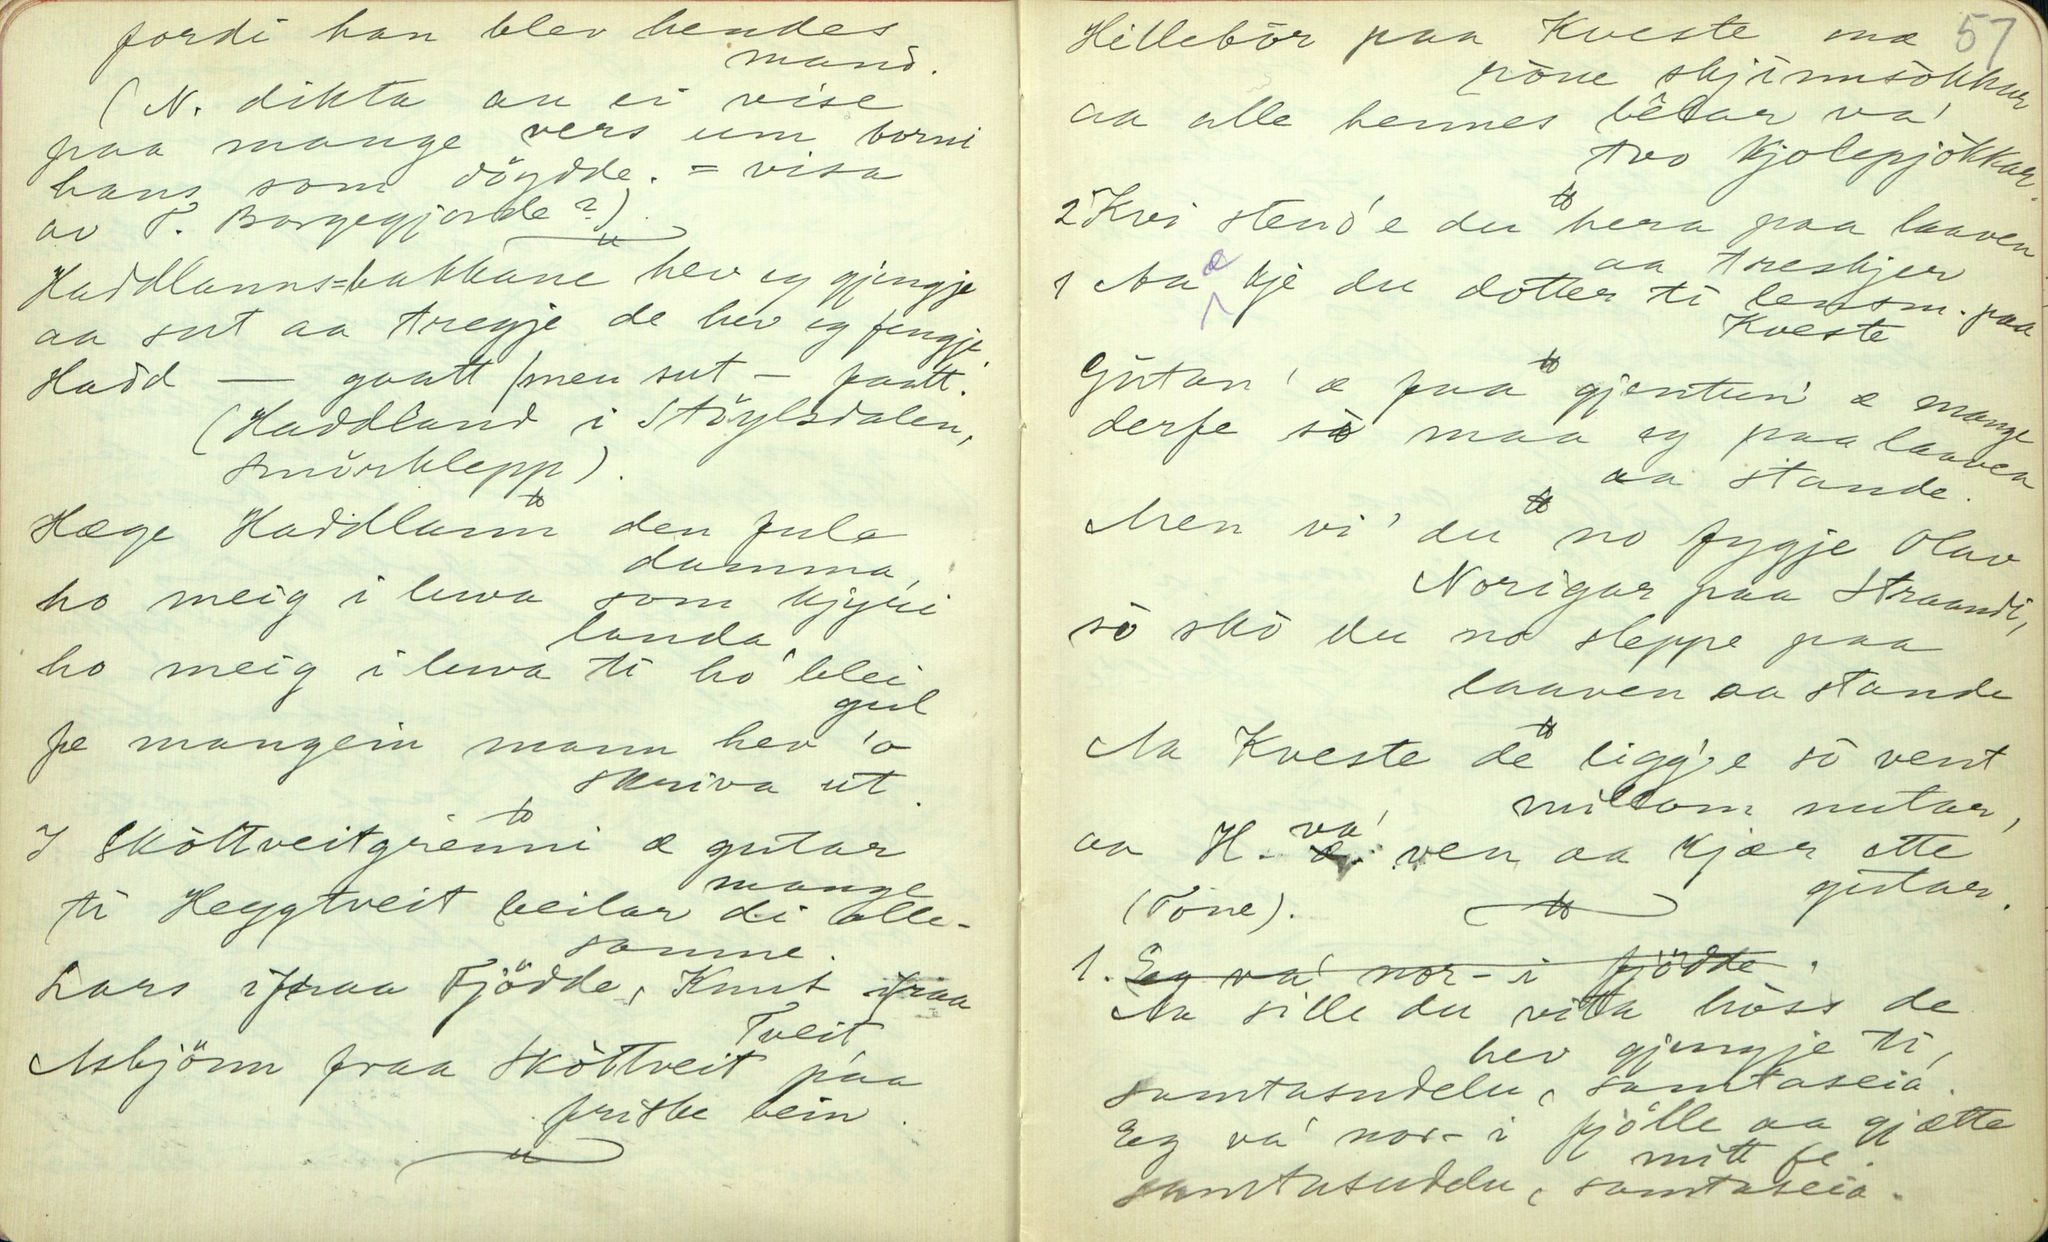 fordi han blev hendes
mand.
(N. dikta au ei vise
paa mange vers um borni
hans som döydde. = visa
av T. Borgegjorde?).
Haddlanns=bakkane hev eg gjengje
aa sut aa tregje de hev eg fengje.
Hadd — gaatt /men sut – faatt.
(Haddland i Stöylsdalen,
Smörklepp).
Hæge Haddlann den fule
damma,
ho meig i luva som kjyri
landa
ho meig i luva ti ho blei
gul
fe mangein mann hev 'o
skriva ut.
I Sköttveitgrenni æ gutar
mange
ti Heggtveit beilar di alle-
samme.
Lars ifraa Fjödde, Knut ifraa
Tveit
Asbjönn fraa Sköttveit paa
friske bein.
57
Hillebör paa Kveste mæ
röne skjinnsökkar
aa alle hennes bêlar va'
tvo kjolepjökkar.
2 Kvi stend'e du hera paa laaven
aa treskjer
1 Aa æ kje du dotter ti lensm. paa
Kveste
Gutan' æ faa gjentun' æ mange
derfe sò maa eg paa laaven
aa stande.
Men vi' du no fygje Olav
Norigar paa Straandi,
sò skò du no sleppe paa
laaven aa stande
Aa Kveste dë ligg'e sò vent
millom nutar,
aa H. va' ven aa kjær ette
gutar.
(Tone).
1. Eg va' nor- i fjödde.
Aa sille du vita hòss de
hev gjengje ti,
samtasudelu, samtaseia.
Eg va' nor- i fjölle aa gjætte
mitt fe.
samtasudelu, samtaseia.